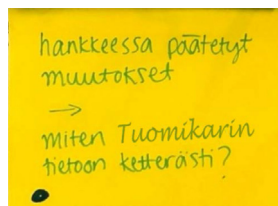 hankkeessa päätetyt
muutokset
→
miten Tuomikarin
tietoon ketterästi?